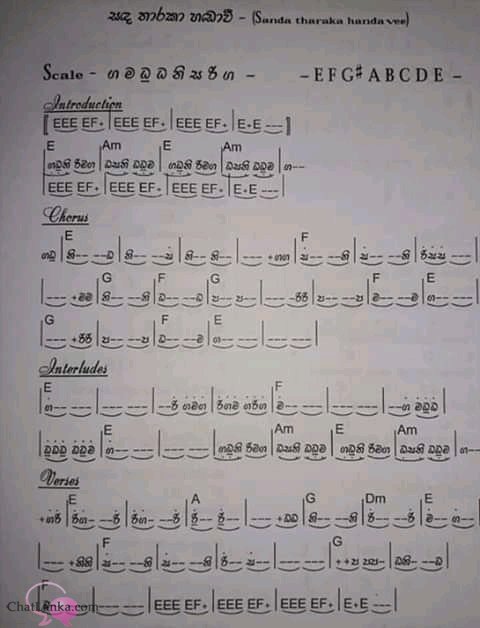 සඳ තාරකා හඬාවී – (Sanda tharaka handa vee)
Scale - ග ම ඔු ධ නි ස රි ග - - E F G# A B C D E -
Introduction
[ EEE EF+ | EEE EF+ | EEE EF+ | E+E --- ]
E Am E Am
ගඩුනි රිමග | ධසනි ධඩුම | ගඩුනි රිමග | ධසනි ධඩුම | ග---
| EEE EF+ | EEE EF+ | EEE EF+ | E+E --- |
Chorus
E F
ගඩු | නි--- ---ධ | නි--- ---ස | නි--- නි--- | --- +ගග | ස--- ---නි | ස--- ---නි | රිසස --- |
G F G F E
| --- +මම | නි--- ---නි | ධ--- ---ධ | ප--- ප--- | --- ---රිරි | ප--- ප--- | ම--- ---ම | ග--- --- |
G F E
| --- +රිරි | ප--- ප--- | ධ--- ---ම | ග--- --- | --- --- |
Interludes
E F
| ග--- --- | --- --- | ---රි ගමග | රිගම ගරිග | ම--- --- | --- --- | ---ග මඩුඩු |
E Am E Am
| ඩුඩුඩු ඩුඩුම | ග--- --- | --- --- | ගඩුනි රිමග | ධසනි ධඩුම | ගඩුනි රිමග | ධසනි ධඩුම | ග---
Verses
E A G Dm E
+ගරි | රිග- ---රි | රිග- ---රි | රි--- රි--- | --- +ධධ | නි--- නි--- | රි--- ---රි | ම--- ග--- |
F G
| --- +නිනි | ස--- ---නි | ස--- ---නි | රි--- ස--- | --- --- | ++ප පප- | ධනි- ---ධ |
F
--- --- | EEE EF+ | EEE EF+ | EEE EF+ | E+E --- |
ChatLanka.com